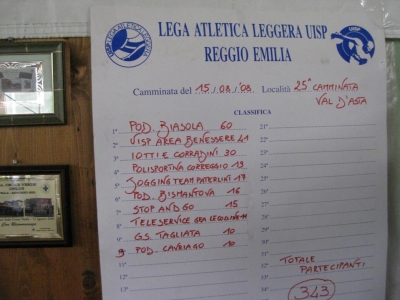 LEGA ATLETICA LEGGERA UISP
REGGIO EMILIA
Camminata del 15/08/'08 Località 25ª CAMMINATA
VAL D'ASTA
CLASSIFICA
1° POD. BIASOLA 60
2° VISP. AREA BENESSERE 41
3° IOTTI E CORRADINI 30
4° POLISPORTIVA CORREGGIO 19
5° JOGGING TEAM PATERLINI 17
6° POD. BISMANTOVA 16
7° STOP AND GO 15
8° TELESERVICE
G.S. TAGLIATA 10
9 POD. CAVRIAGO 10
11°
12°
13°
21°
22°
23°
24°
25°
26°
27°
28°
29°
30°
31°
32° TOTALE
PARTECIPANTI
343